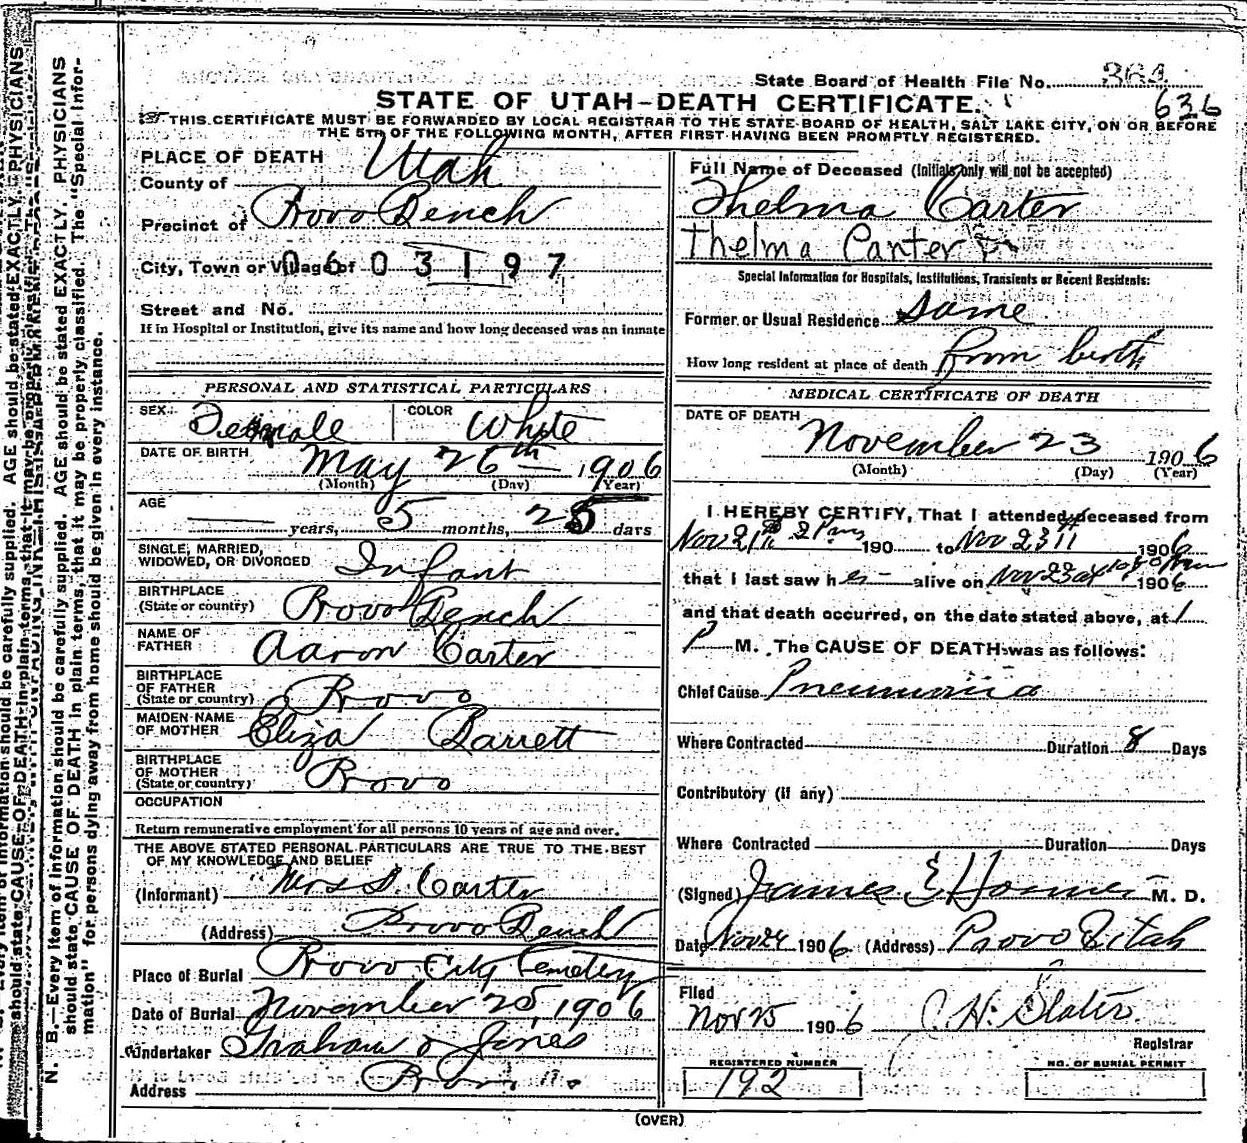 State Board of Health File No. 364
636
STATE OF UTAH—DEATH CERTIFICATE.
THIS CERTIFICATE MUST BE FORWARDED BY LOCAL REGISTRAR TO THE STATE BOARD OF HEALTH, SALT LAKE CITY, ON OR BEFORE
THE 5TH OF THE FOLLOWING MONTH, AFTER FIRST HAVING BEEN PROMPTLY REGISTERED.
PLACE OF DEATH
County of Utah
Precinct of Provo Bench
City, Town or Village of 0603197
Street and No.
If in Hospital or Institution, give its name and how long deceased was an inmate
PERSONAL AND STATISTICAL PARTICULARS
SEX: Female COLOR White
DATE OF BIRTH May 26th 1906
(Month) (Day) (Year)
AGE years, 5 months, 28 days
SINGLE, MARRIED,
WIDOWED, OR DIVORCED Infant
BIRTHPLACE
(State or country) Provo Bench
NAME OF
FATHER Aaron Carter
BIRTHPLACE
OF FATHER
(State or country) Provo
MAIDEN NAME
OF MOTHER Eliza Barrett
BIRTHPLACE
OF MOTHER
(State or country) Provo
OCCUPATION
Return remunerative employment for all persons 10 years of age and over.
THE ABOVE STATED PERSONAL PARTICULARS ARE TRUE TO THE BEST
OF MY KNOWLEDGE AND BELIEF
(Informant) Mrs D. Carter
(Address) Provo Bench
Place of Burial Provo City Cemetery
Date of Burial November 25, 1906
Undertaker Graham & Jones
Address Provo
Full Name of Deceased (Initials only will not be accepted)
Thelma Carter
Thelma Carter
Special Information for Hospitals, Institutions, Transients or Recent Residents:
Former or Usual Residence Same
How long resident at place of death from birth
MEDICAL CERTIFICATE OF DEATH
DATE OF DEATH November 23 1906
(Month) (Day) (Year)
I HEREBY CERTIFY, That I attended deceased from
Nov 21 2 Pm 190 to Nov 23 11 1906
that I last saw her alive on Nov 23 at 1906
and that death occurred, on the date stated above, at 1
P M. The CAUSE OF DEATH was as follows:
Chief Cause Pneumonia
Where Contracted Duration 8 Days
Contributory (if any)
Where Contracted Duration Days
(Signed) James E Hosmer M. D.
Date Nov 24 1906 (Address) Provo Utah
Filed
Nov 25 1906 C. H. Slater
Registrar
REGISTERED NUMBER NO. OF BURIAL PERMIT
192
(OVER)
N. B.—Every item of information should be carefully supplied. AGE should be stated EXACTLY. PHYSICIANS
should state CAUSE OF DEATH in plain terms, that it may be properly classified. The "Special Infor-
mation" for persons dying away from home should be given in every instance.